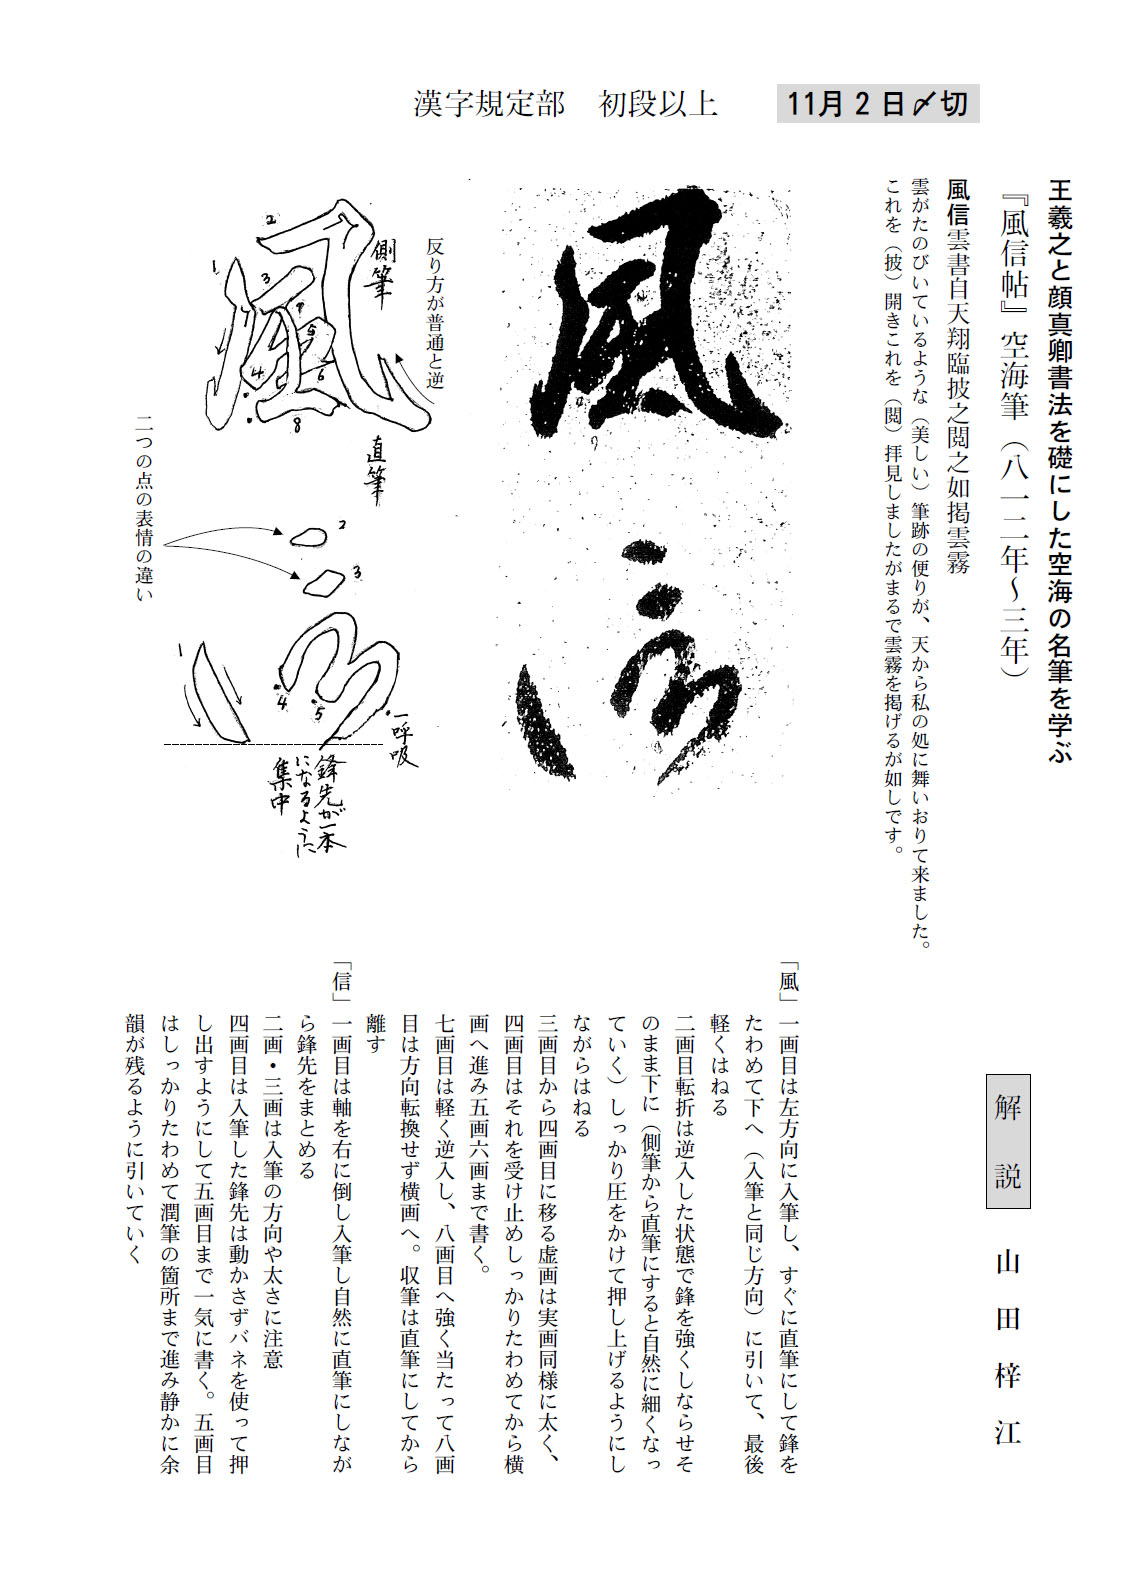 漢字規定部　初段以上
11月2日〆切
王羲之と顔真卿書法を礎にした空海の名筆を学ぶ
『風信帖』空海筆（八一二年〜三年）
風信雲書自天翔臨披之閲之如掲雲霧
雲がたのびいているような（美しい）筆跡の便りが、天から私の処に舞いおりて来ました。
これを（披）開きこれを（閲）拝見しましたがまるで雲霧を掲げるが如しです。
解説
山田梓江
風信
反り方が普通と逆
側筆
直筆
1
2
3
4
5
6
7
8
二つの点の表情の違い
1
2
3
4
5
一呼吸
鋒先が一本
になるように
集中
「風」一画目は左方向に入筆し、すぐに直筆にして鋒を
たわめて下へ（入筆と同じ方向）に引いて、最後
軽くはねる
二画目転折は逆入した状態で鋒を強くしならせそ
のまま下に（側筆から直筆にすると自然に細くなっ
ていく）しっかり圧をかけて押し上げるようにし
ながらはねる
三画目から四画目に移る虚画は実画同様に太く、
四画目はそれを受け止めしっかりたわめてから横
画へ進み五画六画まで書く。
七画目は軽く逆入し、八画目へ強く当たって八画
目は方向転換せず横画へ。収筆は直筆にしてから
離す
「信」一画目は軸を右に倒し入筆し自然に直筆にしなが
ら鋒先をまとめる
二画・三画は入筆の方向や太さに注意
四画目は入筆した鋒先は動かさずバネを使って押
し出すようにして五画目まで一気に書く。五画目
はしっかりたわめて潤筆の箇所まで進み静かに余
韻が残るように引いていく